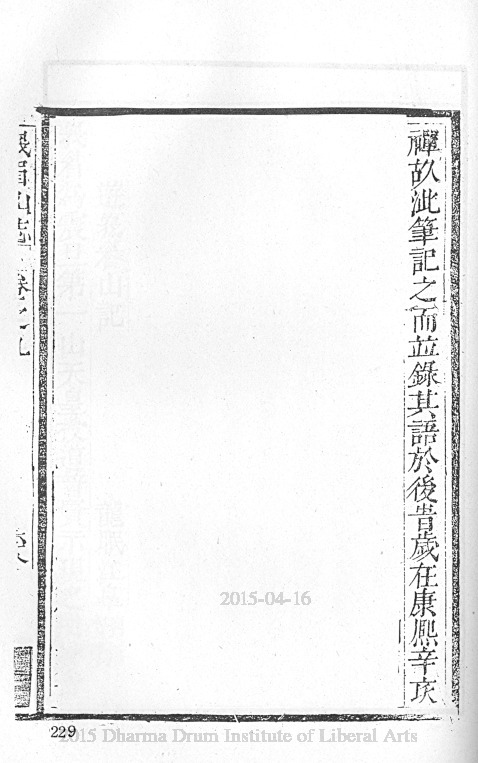 禪故泚筆記之而並錄其語於後旹歲在康熙辛亥
峩眉山志 卷之九
2015-04-16
229
2015 Dharma Drum Institute of Liberal Arts